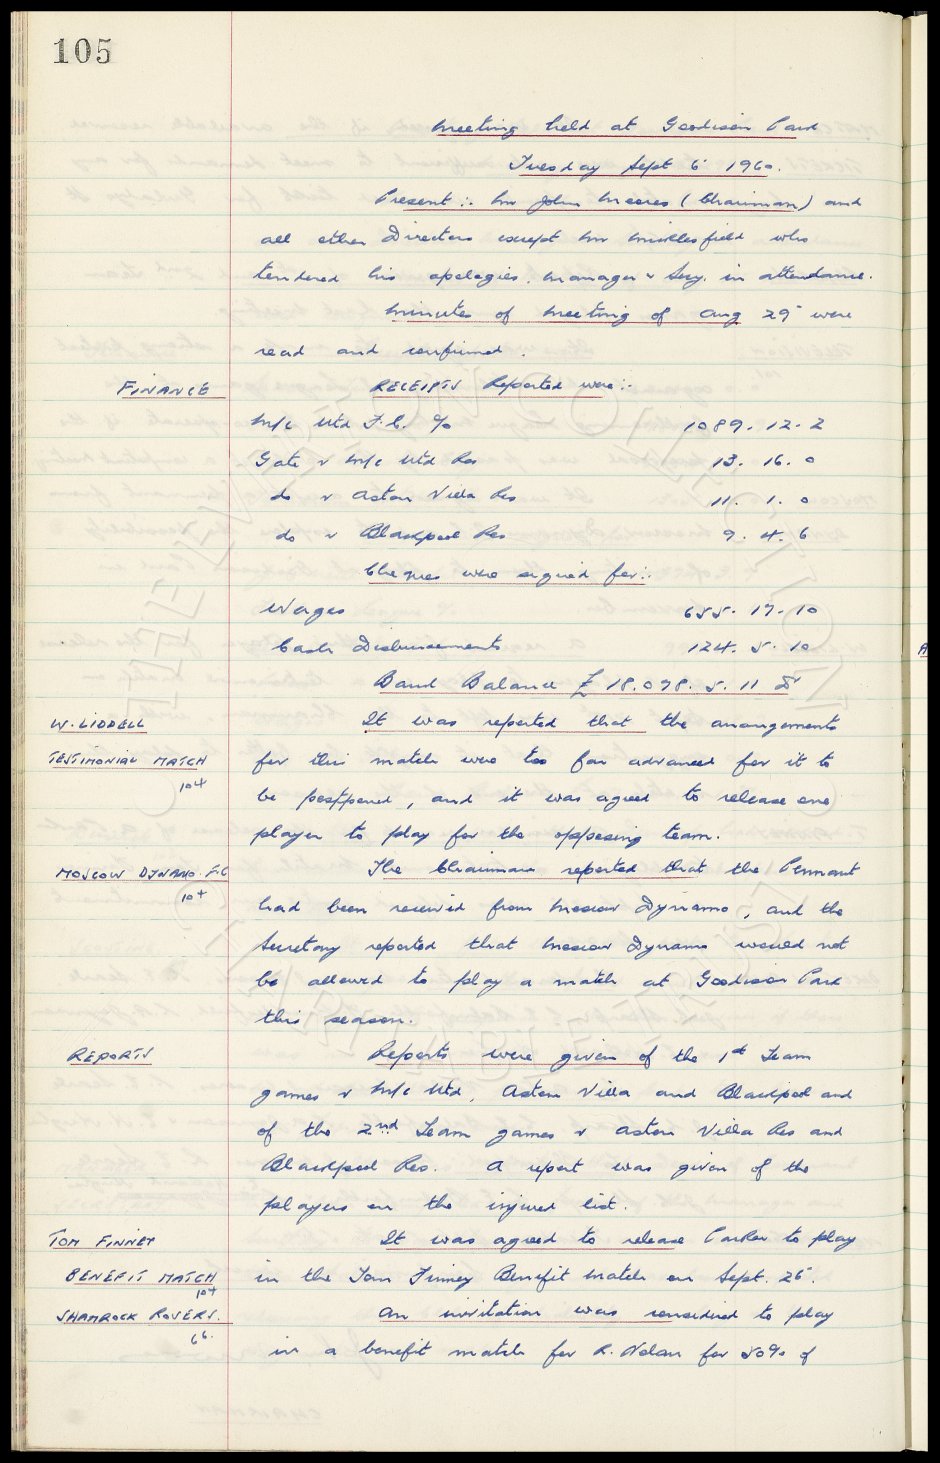 105
Meeting held at Goodison Park
Tuesday Sept 6th 1960.
Present :- Mr John Moores (Chairman) and
all other Directors except Mr Micklesfield who
tendered his apologies. Manager & Secy. in attendance.
Minutes of Meeting of Aug 29th were
read and confirmed.
FINANCE RECEIPTS Reported were :-
M/c Utd F.C. % 1089. 12. 2
Gate v M/c Utd Res 13. 16. 0
do v Aston Villa Res 11. 1. 0
do v Blackpool Res 9. 4. 6
Cheques were signed for :-
Wages 655. 17. 10
Cash Disbursements 124. 5. 10
Bank Balance £ 18.098. 5. 11 Dr
W. LIDDELL It was reported that the arrangements
TESTIMONIAL MATCH for this match were too far advanced for it to
104 be postponed, and it was agreed to release one
player to play for the opposing team.
MOSCOW DYNAMO F.C The Chairman reported that the Pennant
104 had been received from Moscow Dynamo, and the
Secretary reported that Moscow Dynamo would not
be allowed to play a match at Goodison Park
this season.
REPORTS Reports were given of the 1st Team
games v M/c Utd, Aston Villa and Blackpool and
of the 2nd Team games v Aston Villa Res and
Blackpool Res. A report was given of the
players on the injured list.
TOM FINNEY It was agreed to release Parker to play
BENEFIT MATCH in the Tom Finney Benefit Match on Sept. 26th.
104
SHAMROCK ROVERS. An invitation was considered to play
66. in a benefit match for R. Nolan for 50% of